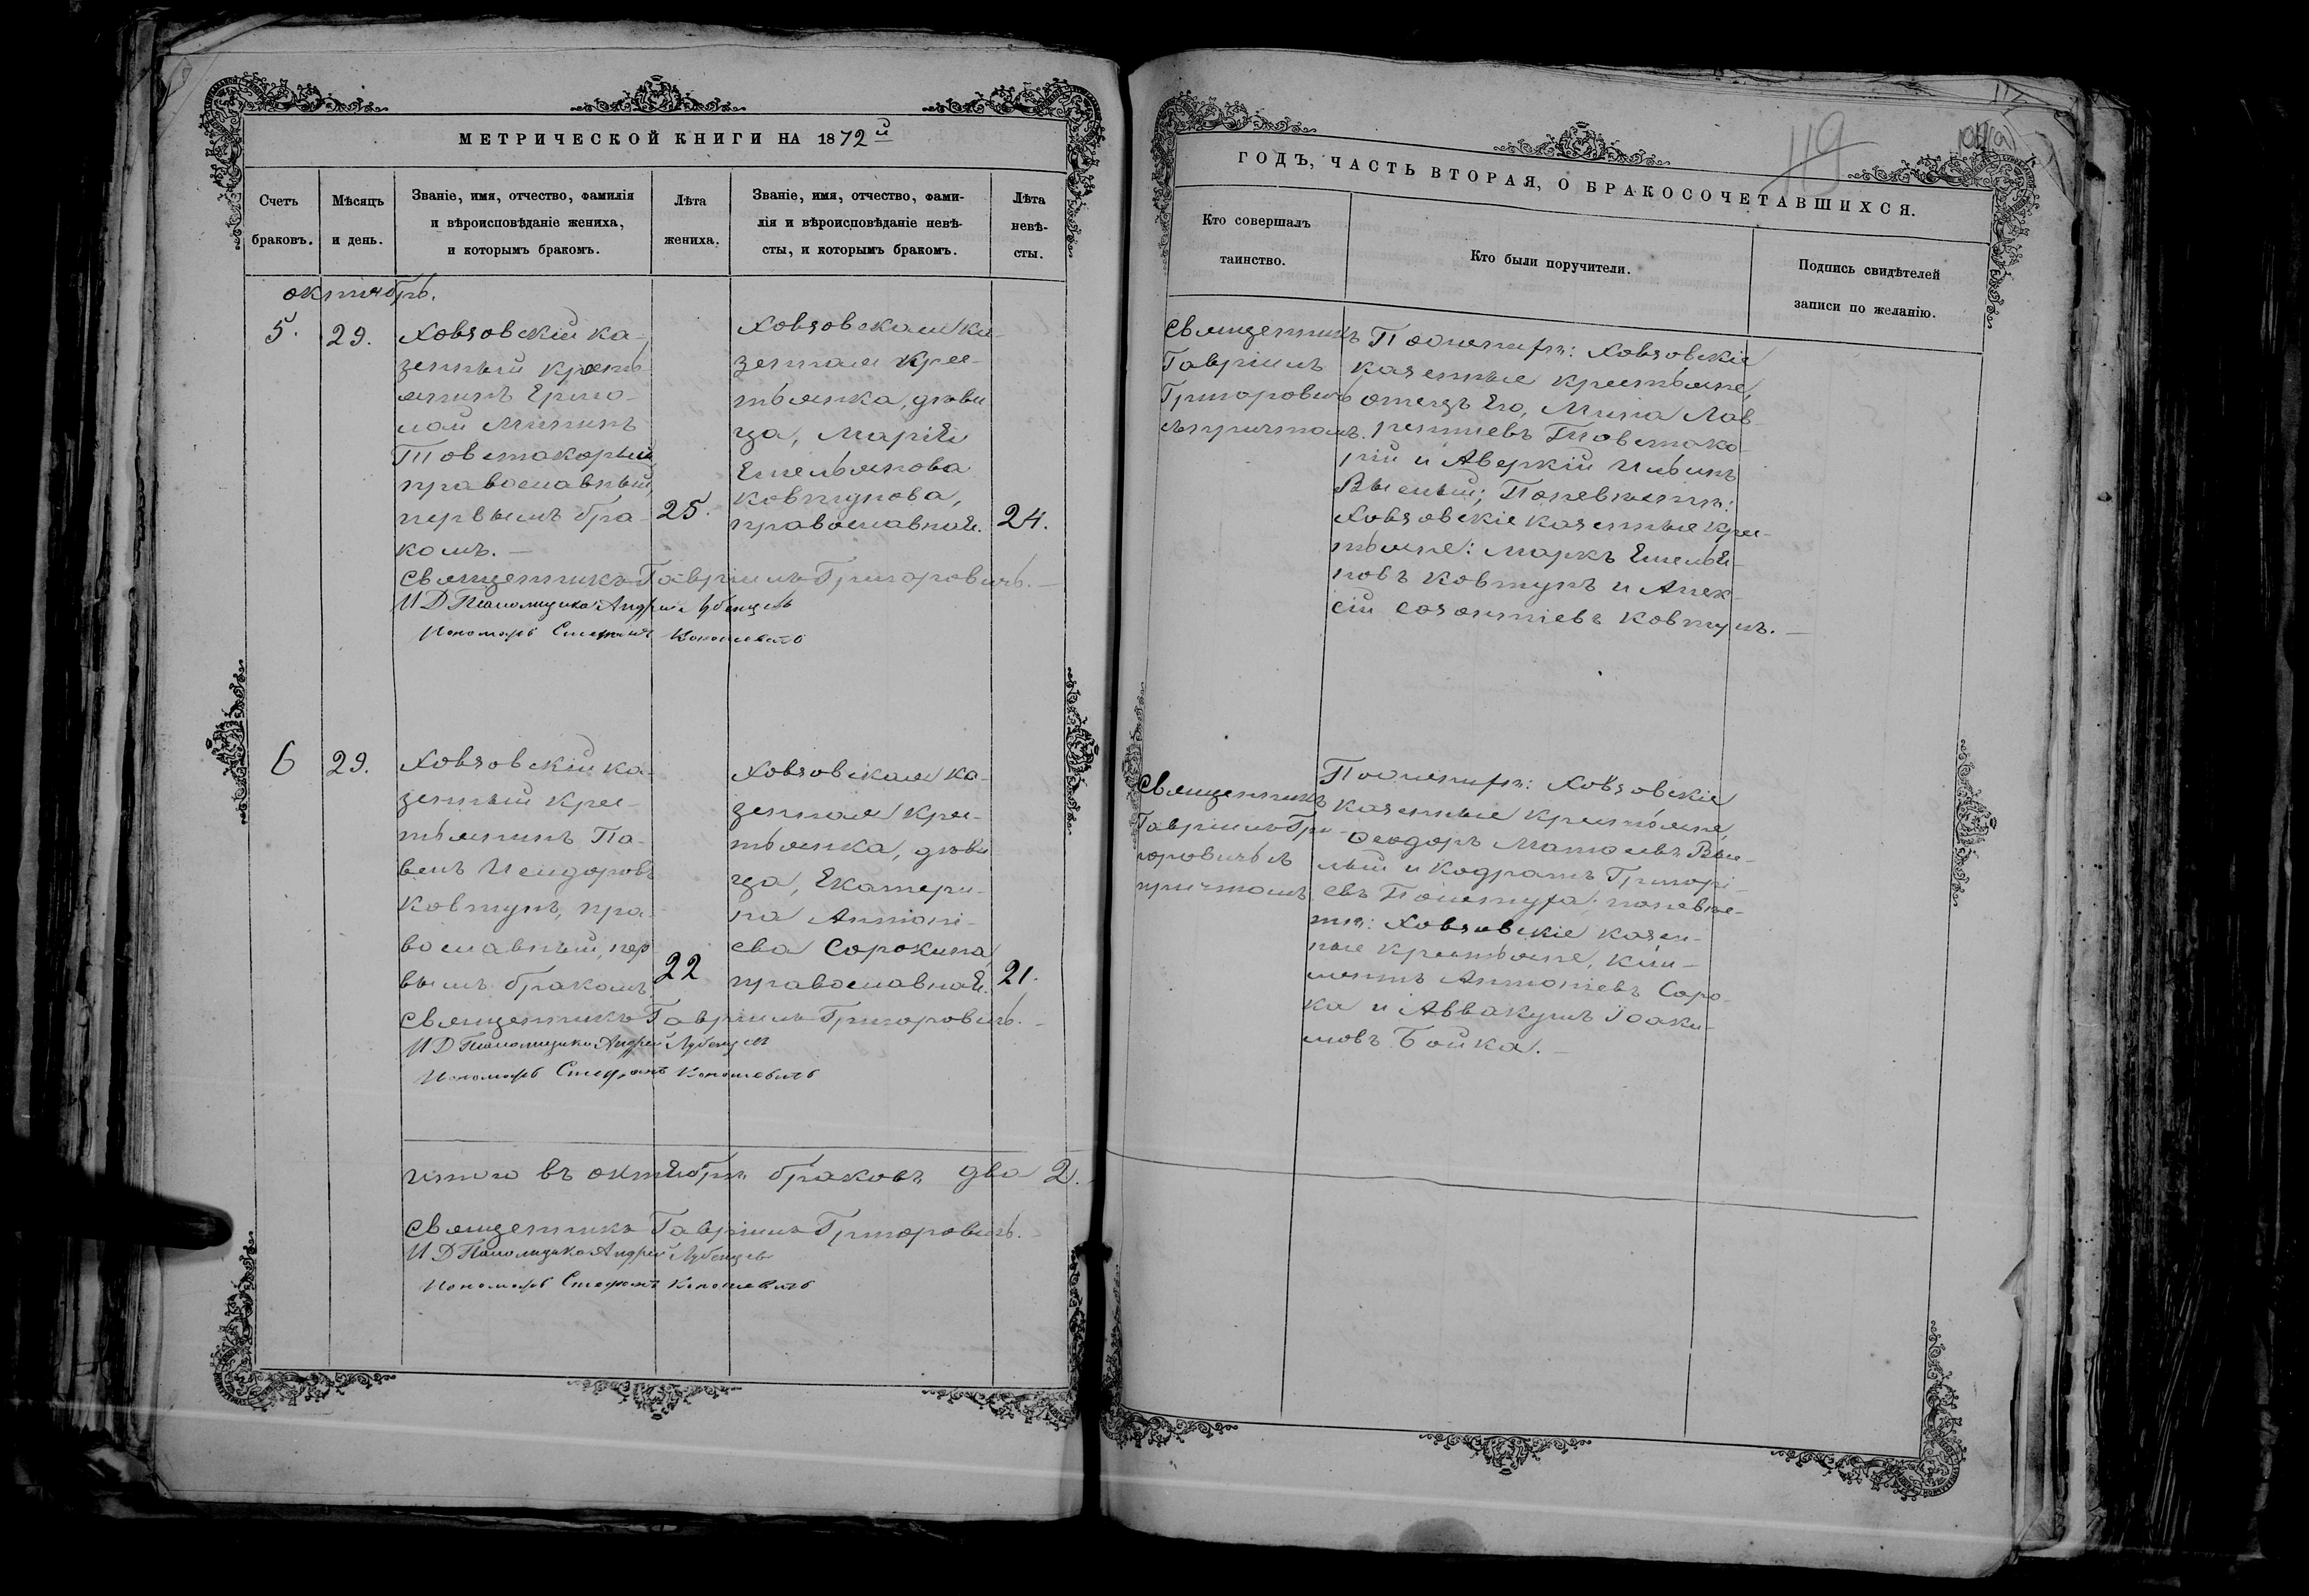 МЕТРИЧЕСКОЙ КНИГИ НА 1872й
Счетъ браковъ.
Мѣсяцъ и день.
Званіе, имя, отчество, фамилія
и вѣроисповѣданіе жениха,
и которымъ бракомъ.
Лѣта жениха.
Званіе, имя, отчество, фами-
лія и вѣроисповѣданіе невѣ-
сты, и которымъ бракомъ.
Лѣта невѣ-
сты.
октябрь.
5. 29.
Ховзовскій ка-
зенный кресть
янинъ Ермо-
лай Мининъ
православный,
первымъ бра-
комъ. —
25.
Ховзовская ка-
зенная крес-
тьянка, дѣви
ца, Марія
Емельянова
Ковтунова,
православная.
24.
Священникъ Гавріилъ Григоровичъ. —
И Д Псаломщика Андрей Лубенцевъ
Пономарь Стефанъ
6 29.
Ховзовскій ка-
зенный крес-
тьянинъ Па-
велъ Исидоровъ
Ковтунъ, пра-
вославный, пер
вымъ бракомъ.
22
Ховзовская ка-
зенная крес-
тьянка, дѣви
ца, Екатери-
на Антоні-
ева Сорокина,
православная.
21.
Священникъ Гавріилъ Григоровичъ. —
И Д Псаломщика Андрей Лубенцевъ
Пономарь Стефанъ
итого въ октябрѣ браковъ два 2.
Священникъ Гавріилъ Григоровичъ.
И Д Псаломщика Андрей Лубенцевъ
Пономарь Стефанъ
119
ГОДЪ, ЧАСТЬ ВТОРАЯ, О БРАКОСОЧЕТАВШИХСЯ.
Кто совершалъ
таинство.
Кто были поручители.
Подпись свидѣтелей
записи по желанію.
Священникъ
Гавріилъ
Григоровичъ
съ причтомъ.
По женихѣ: Ховзовскіе
казенные крестьяне,
отецъ Его, Мина Лав-
рентіевъ Товстоко-
рій и Аверкій Ильинъ
По невѣстѣ:
Ховзовскіе казенные крес-
тьяне: Маркъ Емелья-
новъ Ковтунъ и Алек-
сій Созонтіевъ Ковтунъ. —
Священникъ
Гавріилъ Гри-
горовичъ съ
причтомъ.
По женихѣ: Ховзовскіе
казенные крестьяне,
Ѳеодоръ
и Кодратъ Григорі-
евъ по невѣс-
тѣ: Ховзовскіе казен-
ные крестьяне, Кли-
ментъ Антоніевъ Соро-
ка и Аввакумъ Іоаки-
мовъ Бойка. —